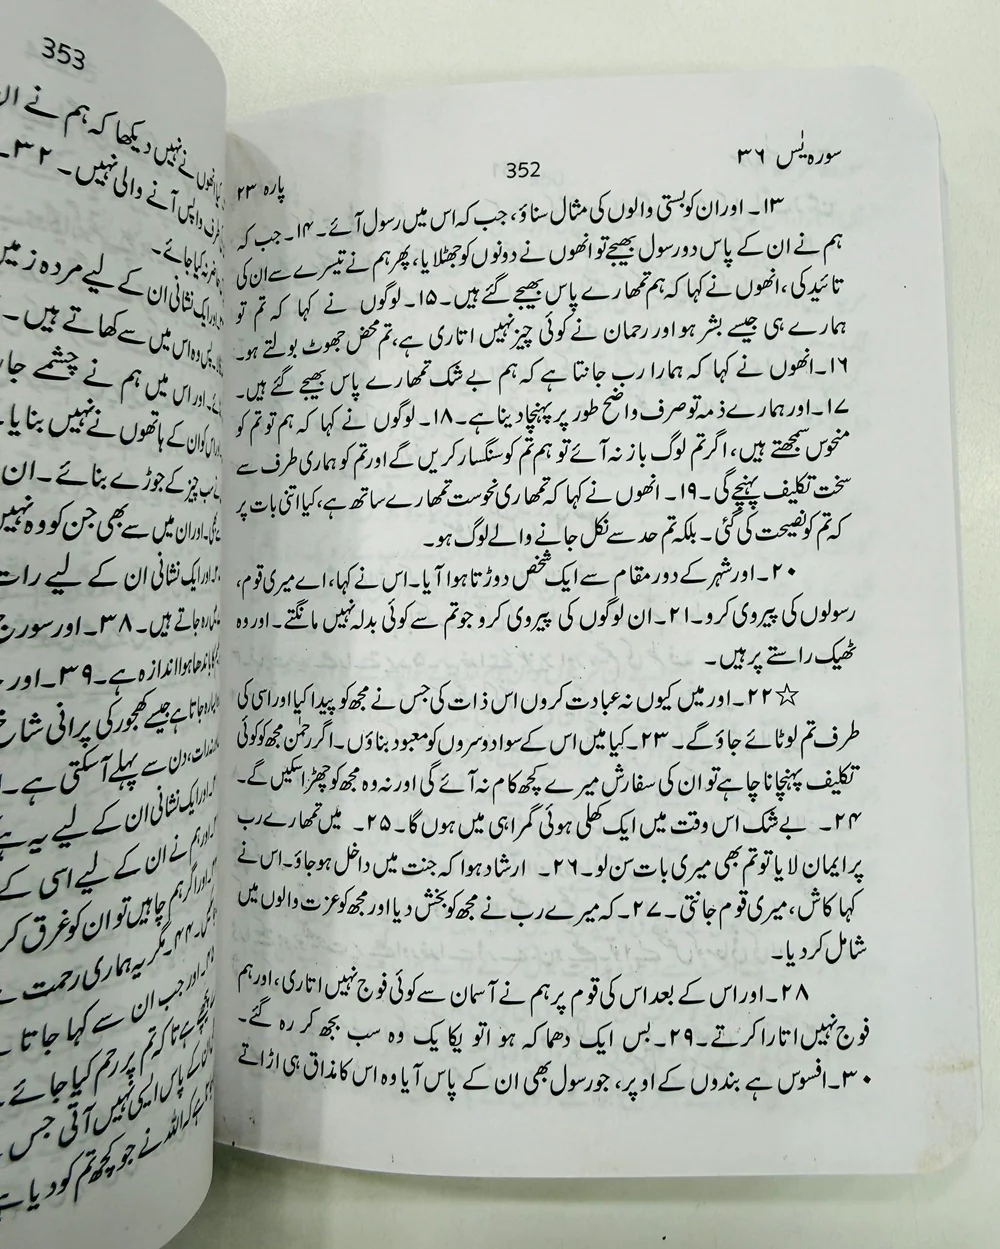 سورہ یٰس ۳۶
352
پارہ ۲۳
۱۳۔ اور ان کو بستی والوں کی مثال سناؤ، جب کہ اس میں رسول آئے۔ ۱۴۔ جب کہ
ہم نے ان کے پاس دو رسول بھیجے تو انھوں نے دونوں کو جھٹلایا، پھر ہم نے تیسرے سے ان کی
تائید کی، انھوں نے کہا کہ ہم تمھارے پاس بھیجے گئے ہیں۔ ۱۵۔ لوگوں نے کہا کہ تم تو
ہمارے ہی جیسے بشر ہو اور رحمان نے کوئی چیز نہیں اتاری ہے، تم محض جھوٹ بولتے ہو۔
۱۶۔ انھوں نے کہا کہ ہمارا رب جانتا ہے کہ ہم بے شک تمھارے پاس بھیجے گئے ہیں۔
۱۷۔ اور ہمارے ذمہ تو صرف واضح طور پر پہنچا دینا ہے۔ ۱۸۔ لوگوں نے کہا کہ ہم تو تم کو
منحوس سمجھتے ہیں، اگر تم لوگ باز نہ آئے تو ہم تم کو سنگسار کریں گے اور تم کو ہماری طرف سے
سخت تکلیف پہنچے گی۔ ۱۹۔ انھوں نے کہا کہ تمھاری نحوست تمھارے ساتھ ہے، کیا اتنی بات پر
کہ تم کو نصیحت کی گئی۔ بلکہ تم حد سے نکل جانے والے لوگ ہو۔
۲۰۔ اور شہر کے دور مقام سے ایک شخص دوڑتا ہوا آیا۔ اس نے کہا، اے میری قوم،
رسولوں کی پیروی کرو۔ ۲۱۔ ان لوگوں کی پیروی کرو جو تم سے کوئی بدلہ نہیں مانگتے۔ اور وہ
ٹھیک راستے پر ہیں۔
☆۲۲۔ اور میں کیوں نہ عبادت کروں اس ذات کی جس نے مجھ کو پیدا کیا اور اسی کی
طرف تم لوٹائے جاؤ گے۔ ۲۳۔ کیا میں اس کے سوا دوسروں کو معبود بناؤں۔ اگر رحمٰن مجھ کو کوئی
تکلیف پہنچانا چاہے تو ان کی سفارش میرے کچھ کام نہ آئے گی اور نہ وہ مجھ کو چھڑا سکیں گے۔
۲۴۔ بے شک اس وقت میں ایک کھلی ہوئی گمراہی میں ہوں گا۔ ۲۵۔ میں تمھارے رب
پر ایمان لایا تو تم بھی میری بات سن لو۔ ۲۶۔ ارشاد ہوا کہ جنت میں داخل ہو جاؤ۔ اس نے
کہا کاش، میری قوم جانتی۔ ۲۷۔ کہ میرے رب نے مجھ کو بخش دیا اور مجھ کو عزت والوں میں
شامل کر دیا۔
۲۸۔ اور اس کے بعد اس کی قوم پر ہم نے آسمان سے کوئی فوج نہیں اتاری، اور ہم
فوج نہیں اتارا کرتے۔ ۲۹۔ بس ایک دھماکہ ہوا تو یکایک وہ سب بجھ کر رہ گئے۔
۳۰۔ افسوس ہے بندوں کے اوپر، جو رسول بھی ان کے پاس آیا وہ اس کا مذاق ہی اڑاتے
353
نہیں دیکھا کہ ہم نے
واپس آنے والی نہیں۔ ۳۲۔
نہ کیا جائے۔
اور ایک نشانی ان کے لیے مردہ زمین
وہ اس میں سے کھاتے ہیں۔
اور اس میں ہم نے چشمے
ان کے ہاتھوں نے نہیں بنایا۔
چیز کے جوڑے بنائے۔ ان
اور ان میں سے بھی جن کو وہ نہیں
اور ایک نشانی ان کے لیے رات
جاتے ہیں۔ ۳۸۔ اور سورج
باندھا ہوا اندازہ ہے۔ ۳۹۔ اور
جاتا ہے جیسے کھجور کی پرانی شاخ
رات، دن سے پہلے آ سکتی ہے۔
اور ایک نشانی ان کے لیے یہ ہے
اور ہم نے ان کے لیے اسی کے
اور اگر ہم چاہیں تو ان کو غرق کر
۴۴۔ مگر یہ ہماری رحمت
اور جب ان سے کہا جاتا
تاکہ تم پر رحم کیا جائے۔
کے پاس ایسی نہیں آتی جس
کہ اللہ نے جو کچھ تم کو دیا ہے